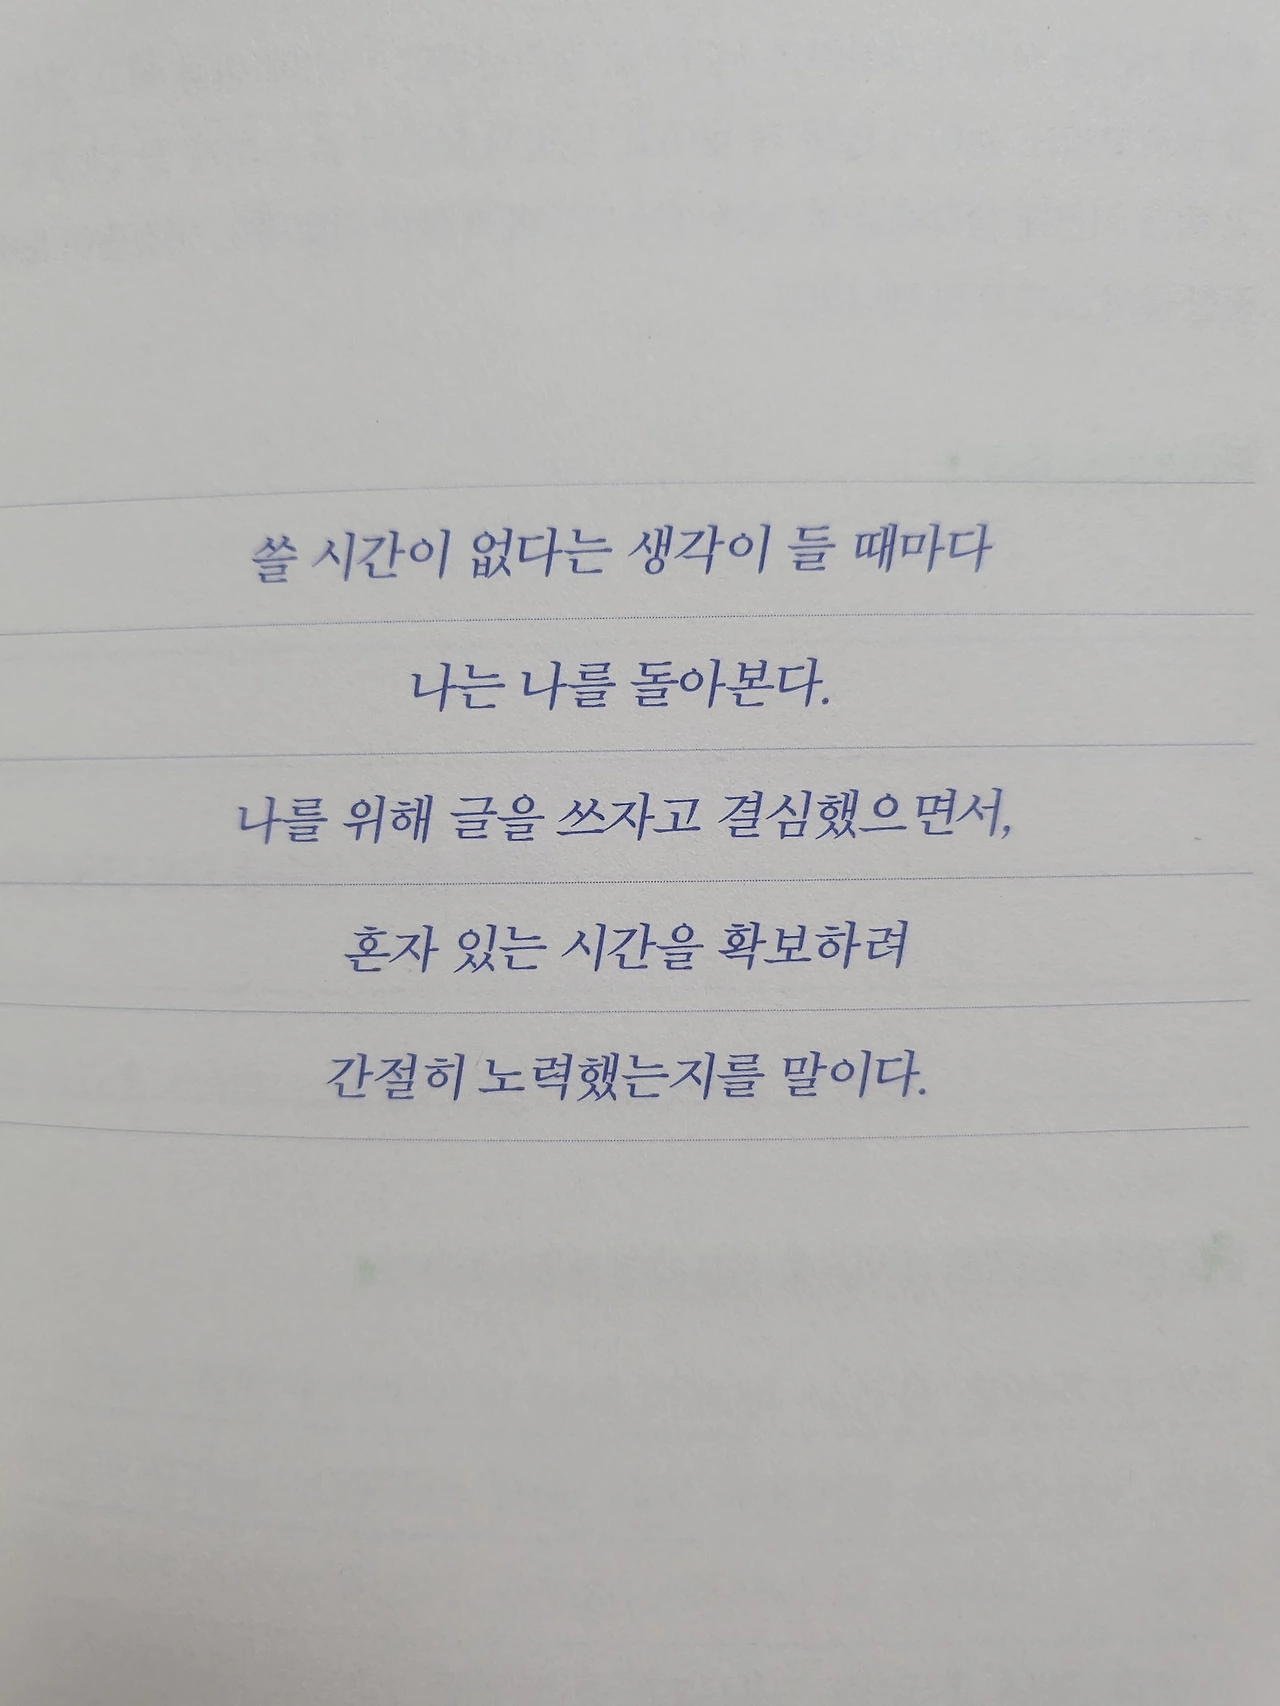 쓸 시간이 없다는 생각이 들 때마다
나는 나를 돌아본다.
나를 위해 글을 쓰자고 결심했으면서,
혼자 있는 시간을 확보하려
간절히 노력했는지를 말이다.